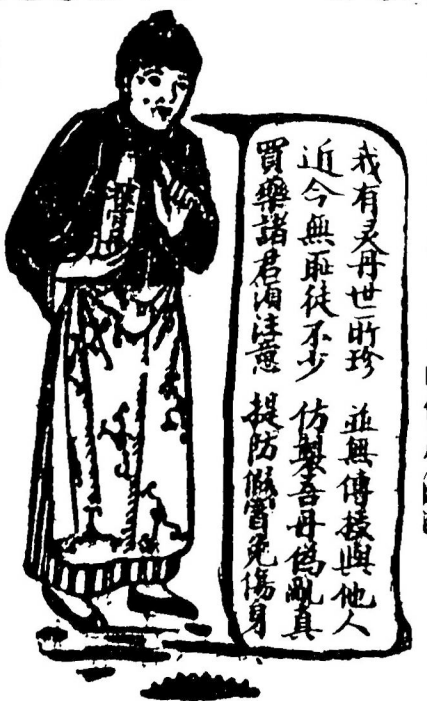 我有灵丹世所珍　並無傳授與他人
近今無恥徒不少　仿製吾丹偽亂真
買藥諸君須注意　提防假冒免傷身